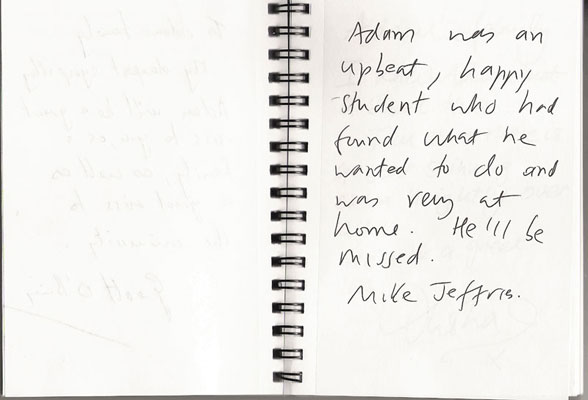 Adam was an
upbeat, happy
student who had
found what he
wanted to do and
was very at
home. He'll be
missed.
Mike Jeffris.